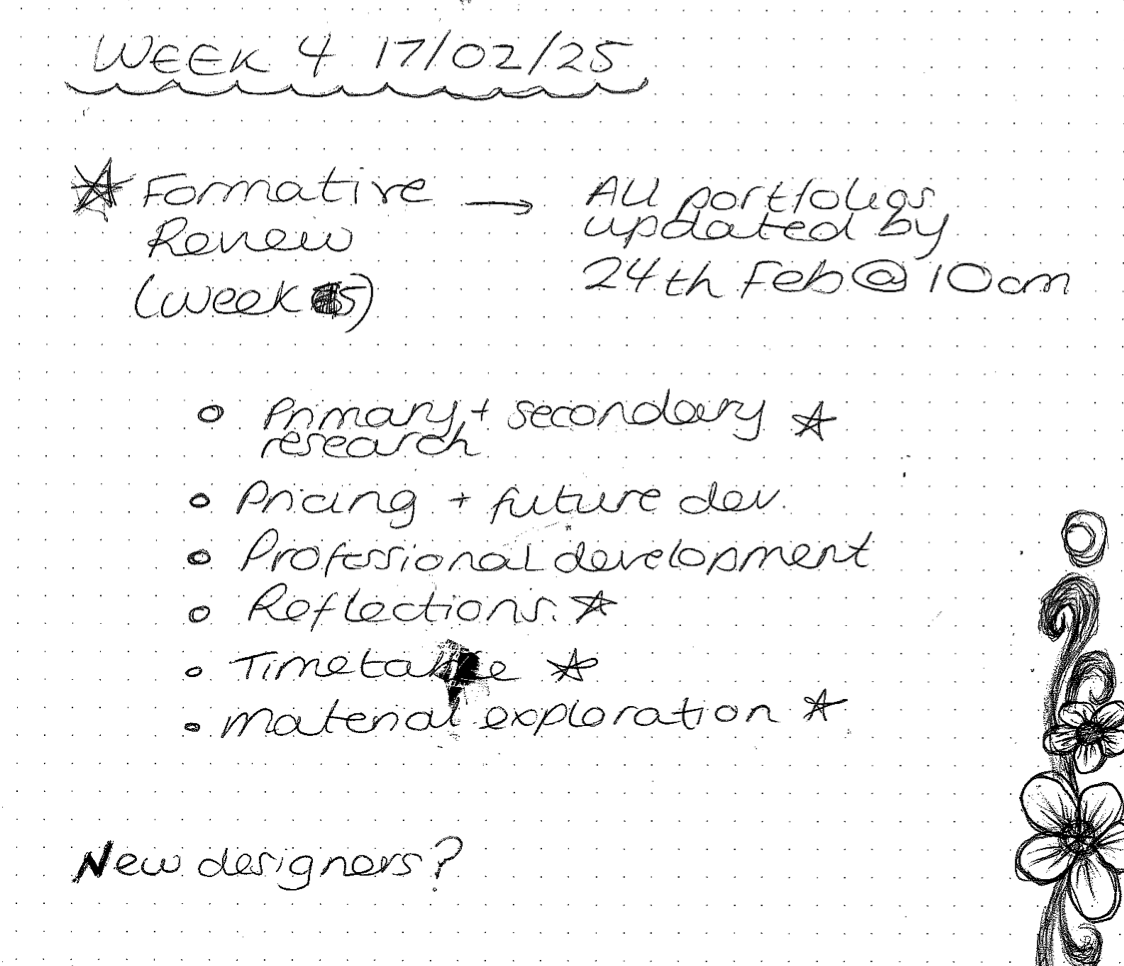 WEEK 4 17/02/25
Formative → All portfolios
Review updated by
(week 5) 24th Feb @ 10am
Primary + secondary
research
Pricing + future dev.
Professional development
Reflections.
Timetable
Material exploration
New designers?